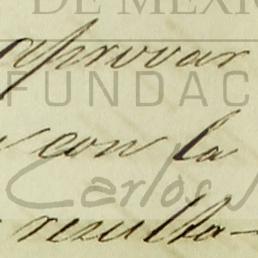 DE MÉXIC
aprovar
FUNDAC
con la
Carlos
resulta-